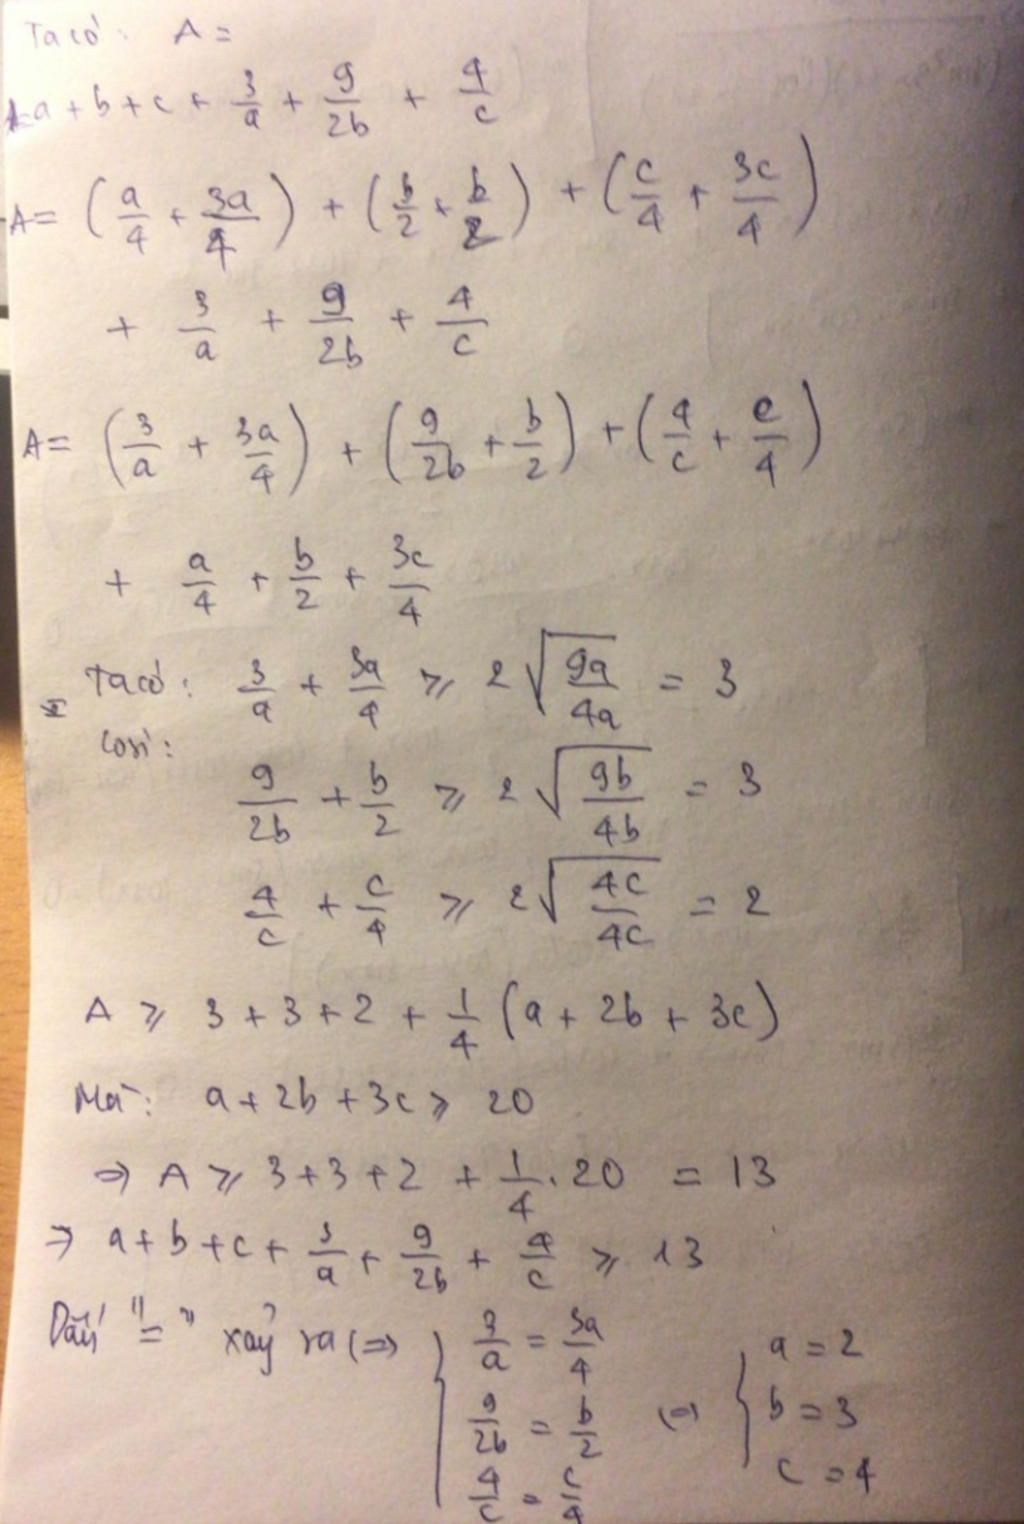 Ta có: A =
a + b + c + 3/a + 9/2b + 4/c
A = (a/4 + 3a/4) + (b/2 + b/2) + (c/4 + 3c/4)
+ 3/a + 9/2b + 4/c
A = (3/a + 3a/4) + (9/2b + b/2) + (4/c + c/4)
+ a/4 + b/2 + 3c/4
Ta có: 3/a + 3a/4 ≥ 2√(9a/4a) = 3
Cosi:
9/2b + b/2 ≥ 2√(9b/4b) = 3
4/c + c/4 ≥ 2√(4c/4c) = 2
A ≥ 3 + 3 + 2 + 1/4 (a + 2b + 3c)
Mà: a + 2b + 3c ≥ 20
⇒ A ≥ 3 + 3 + 2 + 1/4 . 20 = 13
⇒ a + b + c + 3/a + 9/2b + 4/c ≥ 13
Dấu "=" xảy ra (⇒) { 3/a = 3a/4
9/2b = b/2
4/c = c/4
(=) { a = 2
b = 3
c = 4